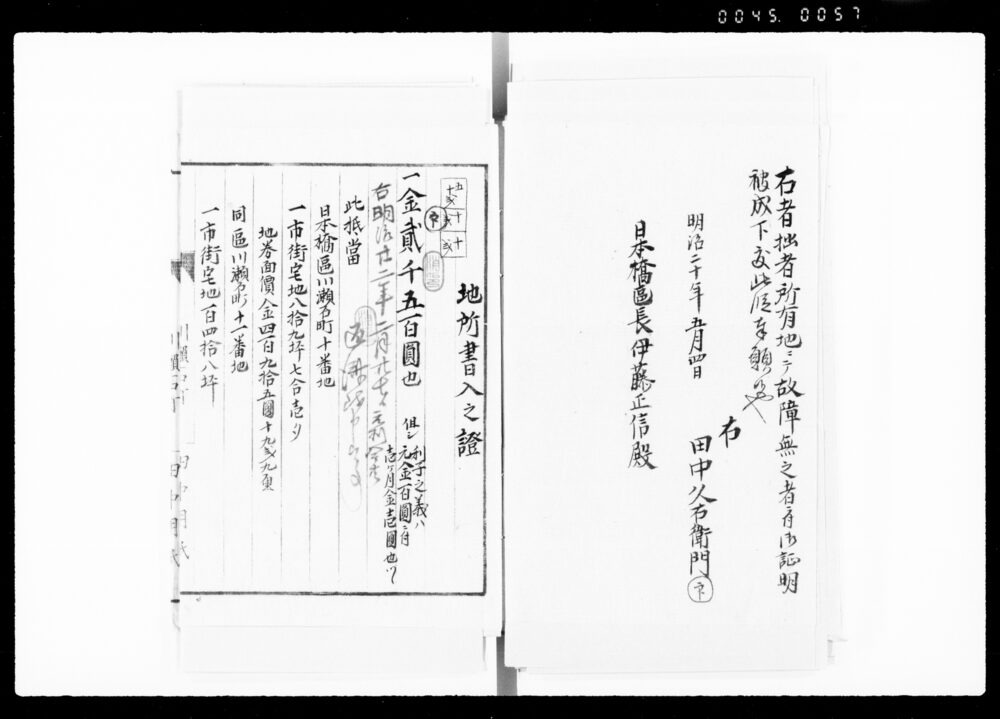 0045. 0057
右者拙者所有地ニテ故障無之者ニ付御証明
被成下度此段奉願候也
明治二十年五月四日
右
田中久右衛門
日本橋區長伊藤正信殿
地所書入之證
一金貳千五百圓也
但シ利子之義ハ
元金百圓ニ付
壱ヶ月金壱圓也
右明治廿二年二月
此抵當
日本橋區川瀬石町十番地
一市街宅地八拾九坪七合壱夕
地券面價金四百九拾五圓十九戋九厘
同區川瀬石町十一番地
一市街宅地百四拾八坪